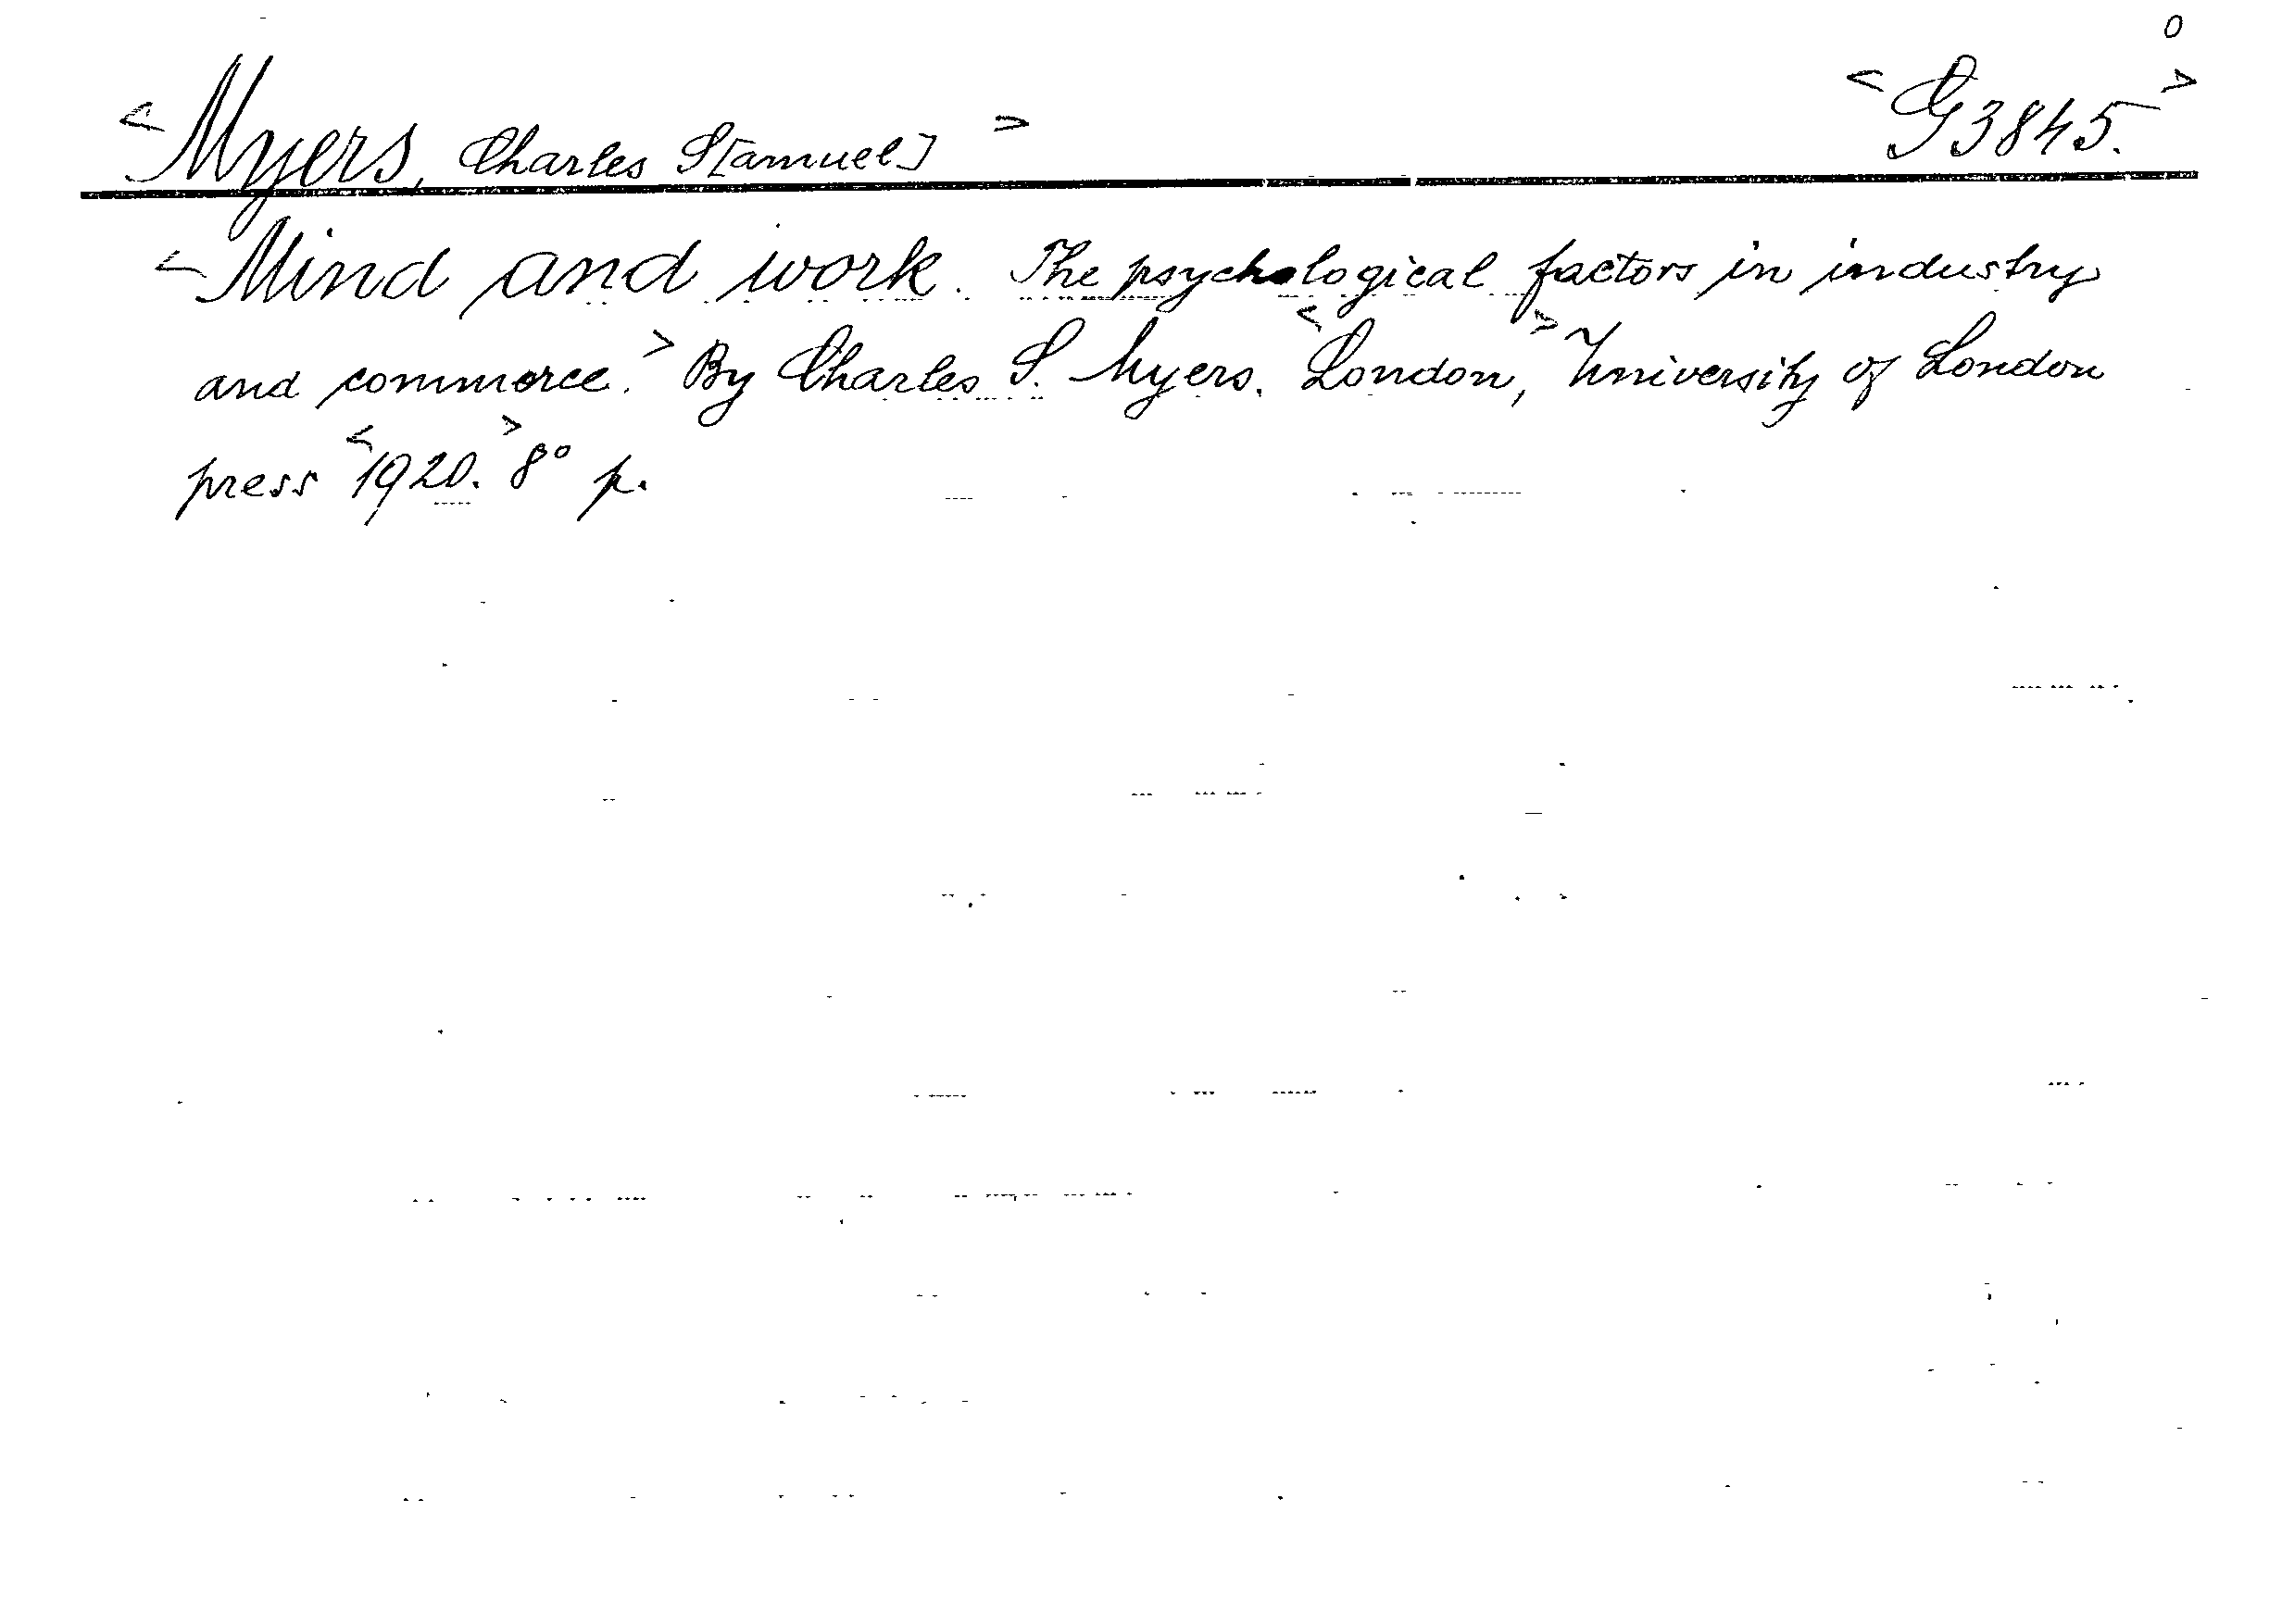 0
<Myers, Charles S[amuel]> <G3845.>
<Mind and work. The psychological factors in industry
and commerce.> By Charles S. Myers. <London,> University of London
press <1920.> 8° p.